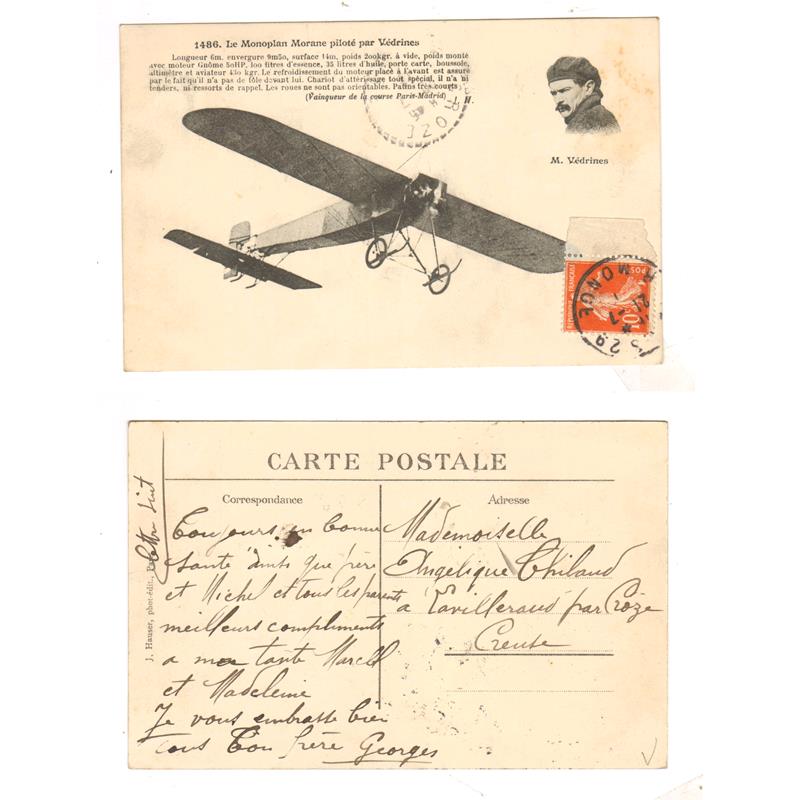 1486. Le Monoplan Morane piloté par Védrines
Longueur 6m. envergure 9m50, surface 14m, poids 200kgr. à vide, poids monté
avec moteur Gnôme 50HP, 100 fitres d'essence, 35 litres d'huile, porte carte, boussole,
altimètre et aviateur 430 kgr. Le refroidissement du moteur placé à l'avant est assuré
par le fait qu'il n'a pas de tôle devant lui. Chariot d'attérissage tout spécial, il n'a ni
tenders, ni ressorts de rappel. Les roues ne sont pas orientables. Patins très courts
(Vainqueur de la course Paris-Madrid) H.
M. Védrines
CROZE
REPUBLIQUE FRANÇAISE
10
21-7
29
CARTE POSTALE
Correspondance
Adresse
J. Hauser, phot-édit.,
Toujours en bonne
santé ainsi que père
et Michel et tous les parents
meilleurs compliments
a ma tante Marcel
et Madeleine
Je vous embrasse bien
tous Ton frère Georges
Mademoiselle
Angélique Thibaud
a Vavilleraud par Croze
Creuse